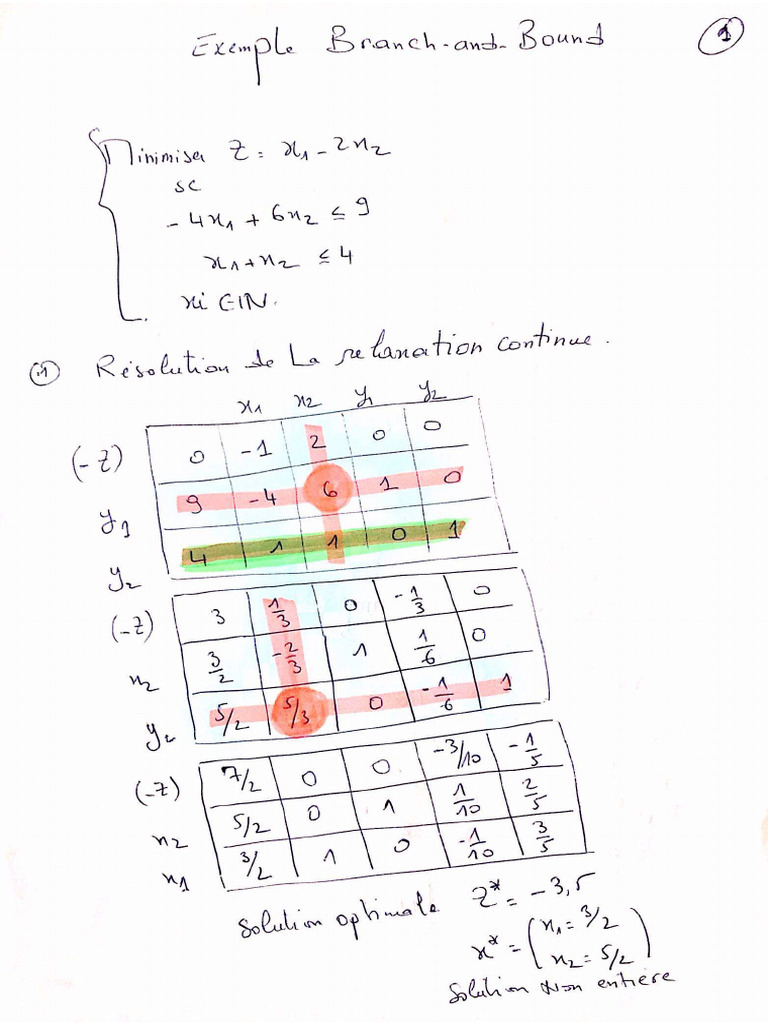 Exemple Branch-and-Bound
1
Minimiser Z = x1 - 2x2
sc
- 4x1 + 6x2 ≤ 9
x1 + x2 ≤ 4
xi ∈ IN.
1 Résolution de La relaxation continue.
x1 x2 y1 y2
(-Z) 0 -1 2 0 0
y1 9 -4 6 1 0
y2 4 1 1 0 1
(-Z) 3 1/3 0 -1/3 0
x2 3/2 -2/3 1 1/6 0
y2 5/2 5/3 0 -1/6 1
(-Z) 7/2 0 0 -3/10 -1/5
x2 5/2 0 1 1/10 2/5
x1 3/2 1 0 -1/10 3/5
Solution optimale Z* = -3,5
x* = (x1 = 3/2
x2 = 5/2)
Solution Non entière